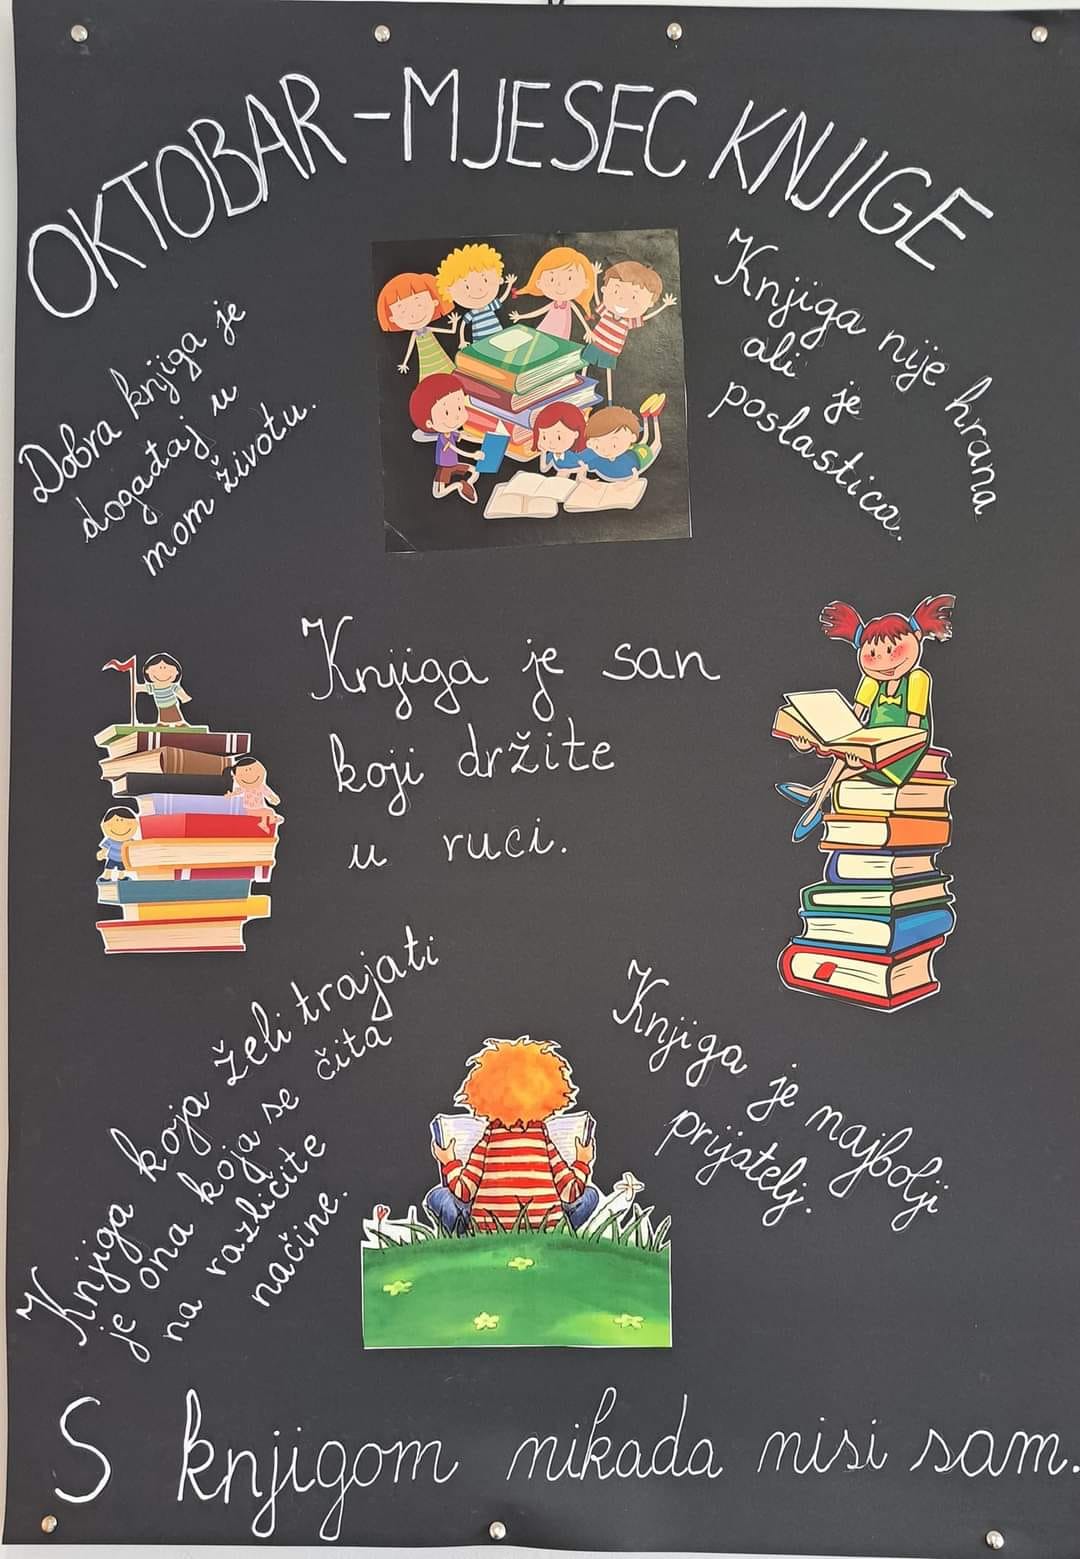 OKTOBAR - MJESEC KNJIGE
Dobra knjiga je
događaj u
mom životu.
Knjiga nije hrana
ali je
poslastica.
Knjiga je san
koji držite
u ruci.
Knjiga koja želi trajati
je ona koja se čita
na različite
načine.
Knjiga je najbolji
prijatelj.
S knjigom nikada nisi sam.